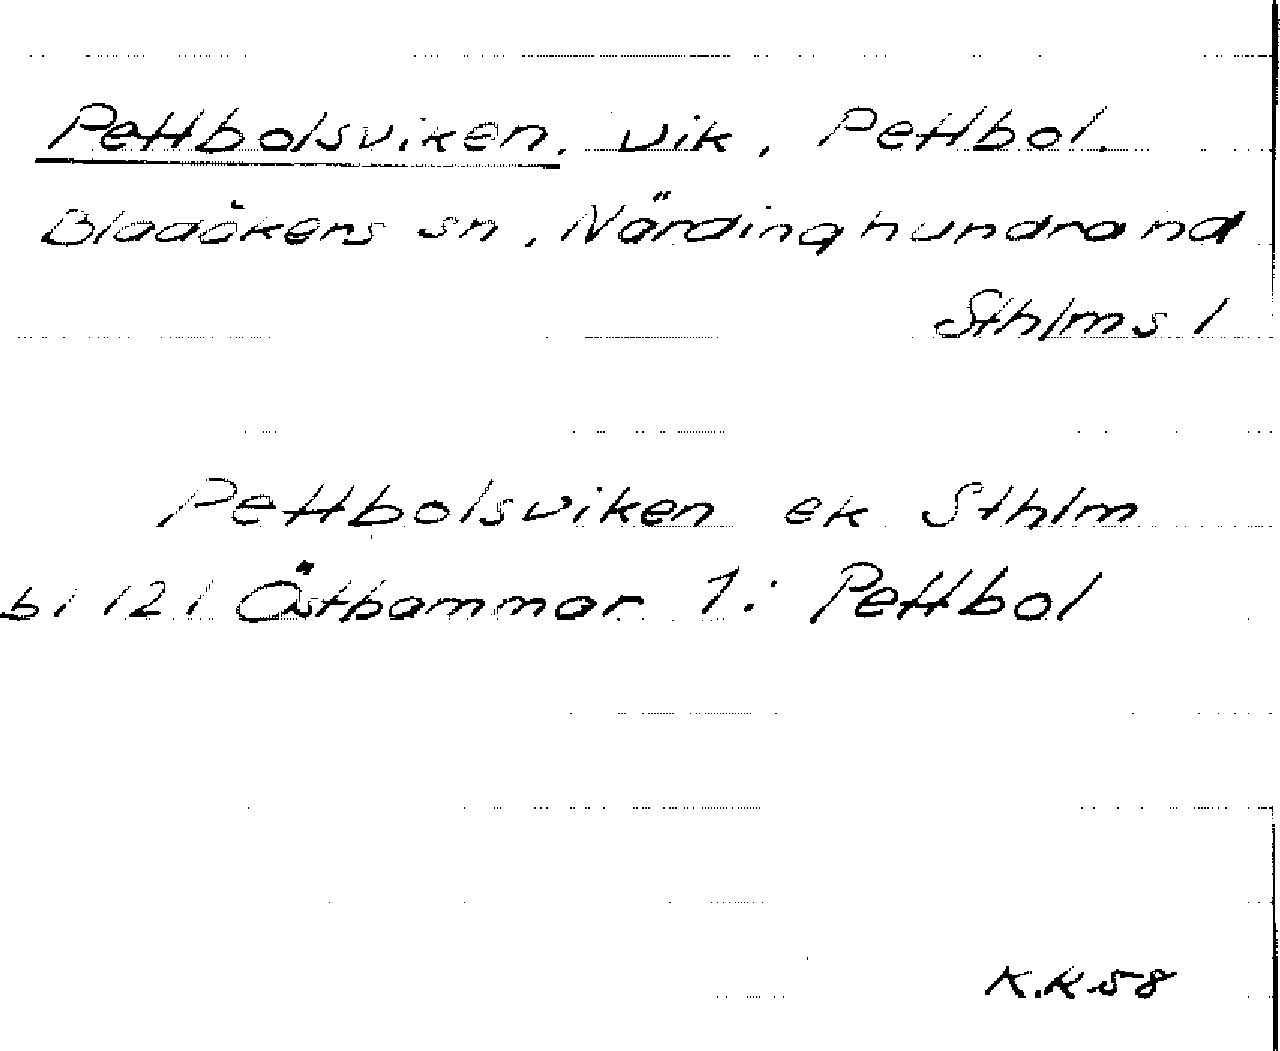 Pettbolsviken, vik, Pettbol.
Bladåkers sn, Närdinghundra hd
Sthlms l
Pettbolsviken ek Sthlm
bl 121 Östhammar 1: Pettbol
K.K 58